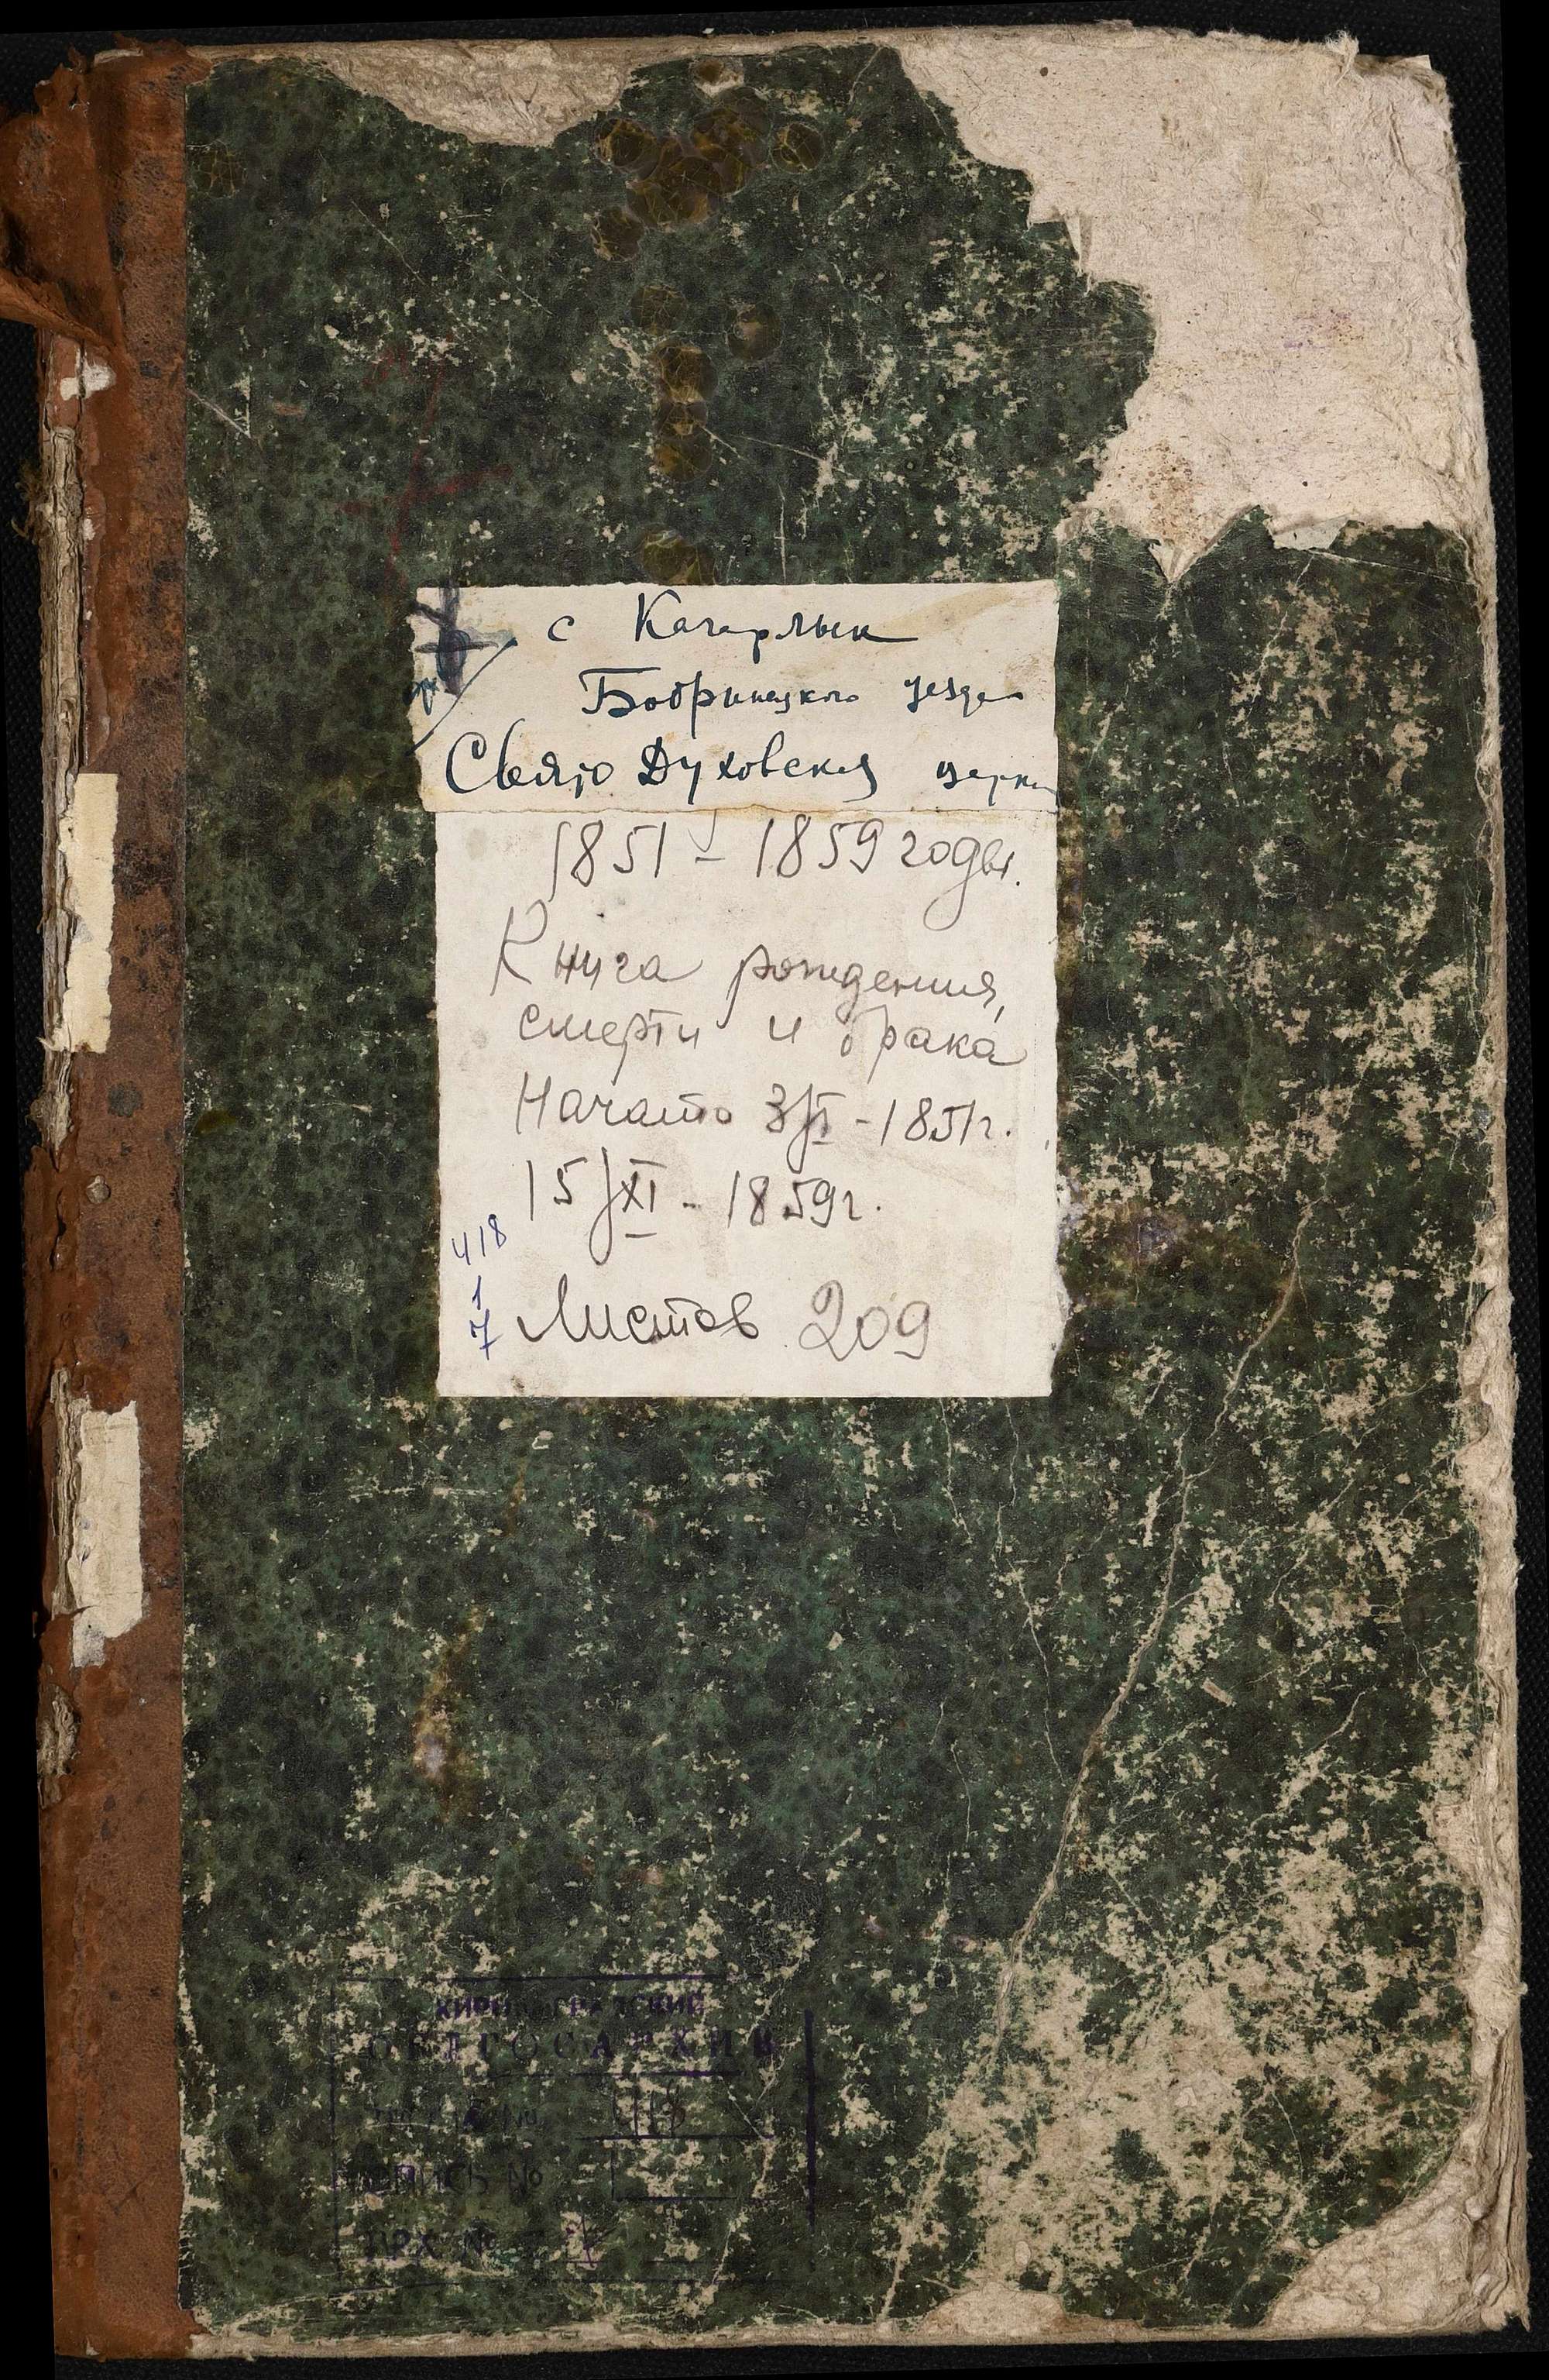 с Качарлык
Бобринецкого уезда
Свято Духовская церк
1851 - 1859 годы.
Книга рождения,
смерти и брака
Начато 3/I - 1851г.
15/XI - 1859г.
418
1
7 Листов 209
КИРОВОГРАДСКИЙ
ОБЛГОСАРХИВ
ФОНД № 418
ОПИСЬ № 1
АРХ № 7